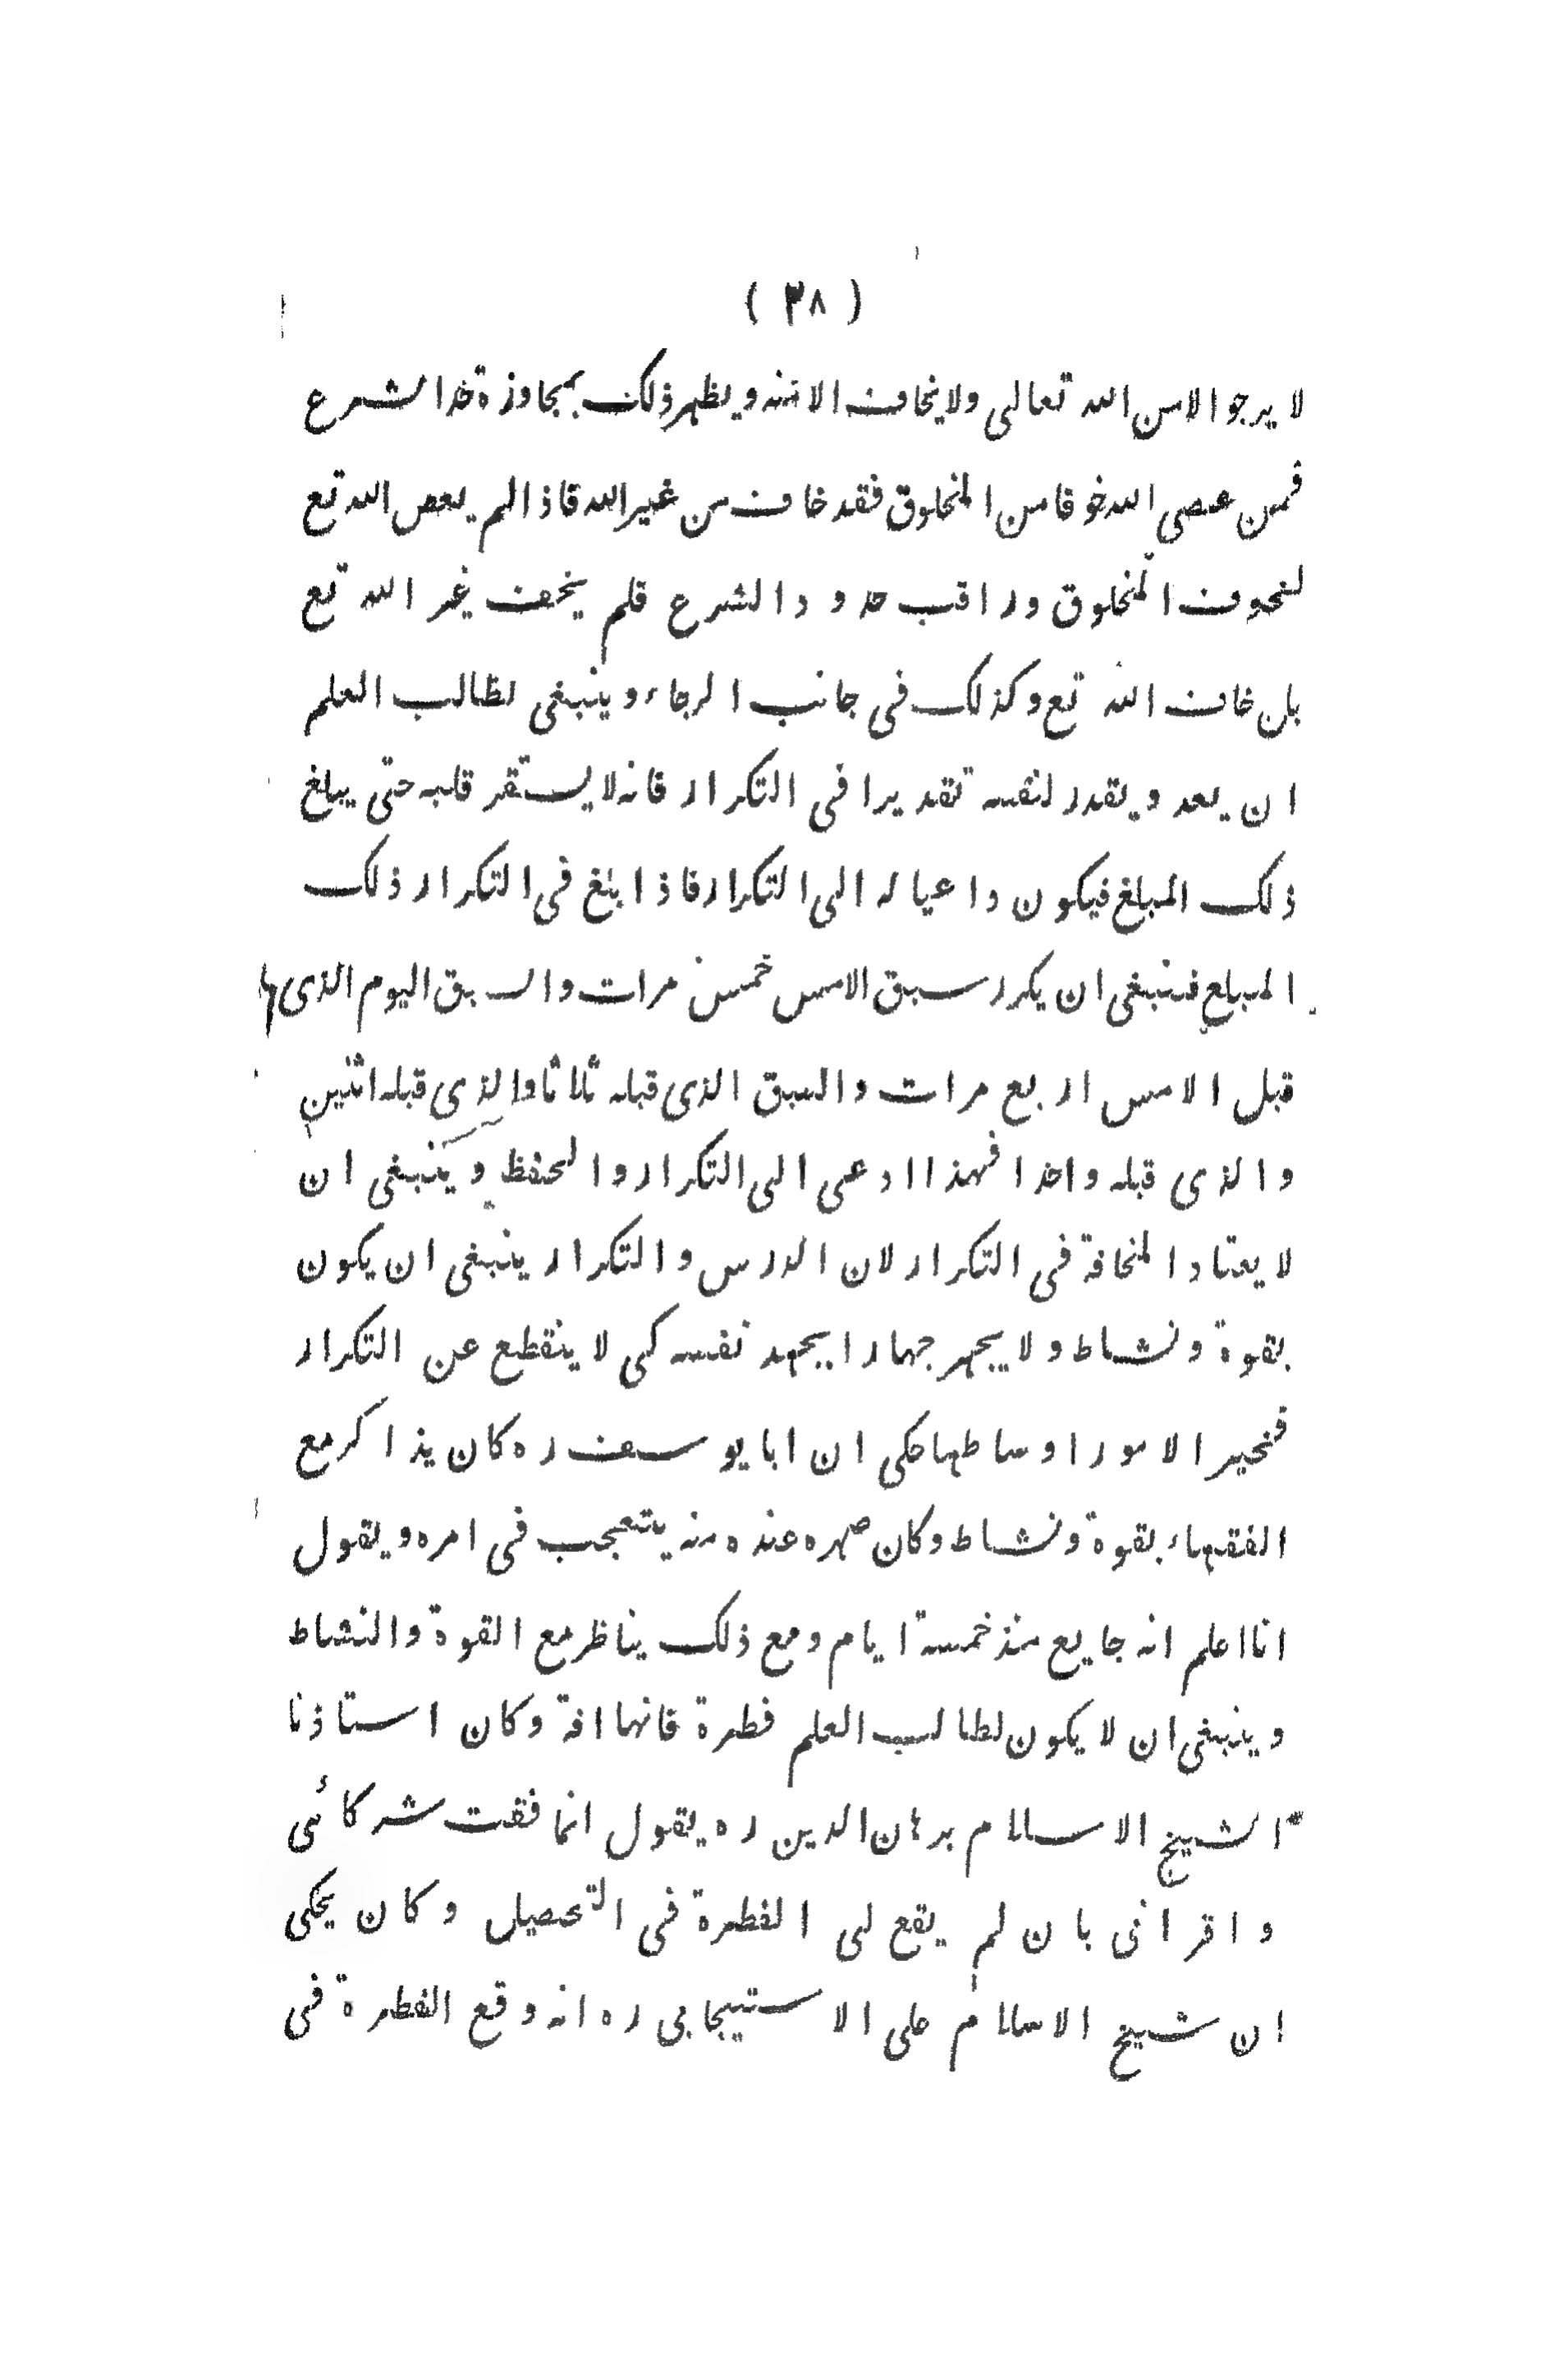 ( ٣٨ )
لا يرجو الا من الله تعالى ولا يخاف الا منه ويظهر ذلك بمجاوزة حد الشرع
فمن عصى الله خوفا من المخلوق فقد خاف من غير الله فاذا لم يعص الله تع
لخوف المخلوق وراقب حدود الشرع فلم يخف غير الله تع
بل خاف الله تع وكذلك في جانب الرجاء وينبغي لطالب العلم
ان يعد ويقدر لنفسه تقديرا في التكرار فانه لا يستقر قلبه حتى يبلغ
ذلك المبلغ فيكون داعيا له الى التكرار فاذا بلغ في التكرار ذلك
المبلغ فينبغي ان يكرر سبق الامس خمس مرات والسبق اليوم الذي
قبل الامس اربع مرات والسبق الذي قبله ثلاثا والذي قبله اثنين
والذي قبله واحدا فهذا ادعى الى التكرار والحفظ وينبغي ان
لا يعتاد المخافة في التكرار لان الدرس والتكرار ينبغي ان يكون
بقوة ونشاط ولا يجهر جهارا يجهد نفسه كى لا ينقطع عن التكرار
فخير الامور اوساطها حكي ان ابا يوسف ره كان يذاكر مع
الفقهاء بقوة ونشاط وكان صهره عنده منه يتعجب في امره ويقول
انا اعلم انه جايع منذ خمسة ايام ومع ذلك يناظر مع القوة والنشاط
وينبغي ان لا يكون لطالب العلم فطرة فانها افة وكان استاذنا
الشيخ الاسلام برهان الدين ره يقول انما فقت شركائى
واقرانى بان لم يقع لى الفطرة في التحصيل وكان يحكى
ان شيخ الاسلام على الاستيجابى ره انه وقع الفطرة في